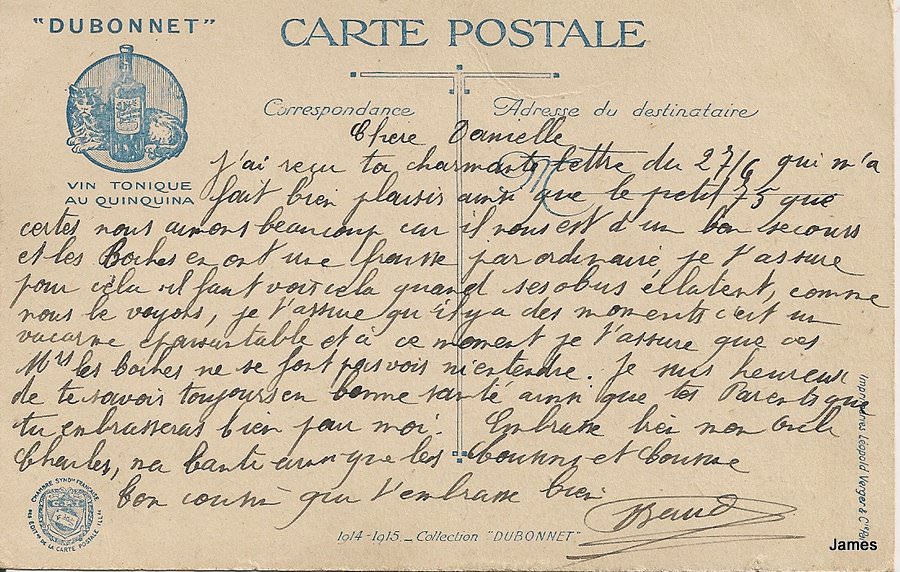 "DUBONNET"
CARTE POSTALE
Correspondance
Adresse du destinataire
VIN TONIQUE
AU QUINQUINA
Chere Danielle
J'ai reçu ta charmante lettre du 27/6 qui m'a
fait bien plaisir ainsi que le petit 75 que
certes nous aimons beaucoup car il nous est d'un bon secours
et les Boches en ont une frousse par ordinaire, je t'assure
pour cela il faut voir cela quand ses obus éclatent, comme
nous le voyons, je t'assure qu'il y a des moments c'est un
vacarme épouvantable et à ce moment je t'assure que ces
Mrs les boches ne se font pas voir ni entendre. Je suis heureux
de te savoir toujours en bonne santé ainsi que tes Parents que
tu embrasseras bien pour moi. Embrasse bien mon Oncle
Charles, ma tante ainsi que les Cousins et Cousine
Ton cousin qui t'embrasse bien
CHAMBRE SYNDle FRANÇAISE
DES ÉDITrs DE LA CARTE POSTALE ILLée
1914-1915 _ Collection "DUBONNET"
Imprimeries Léopold Verger & Cie
James